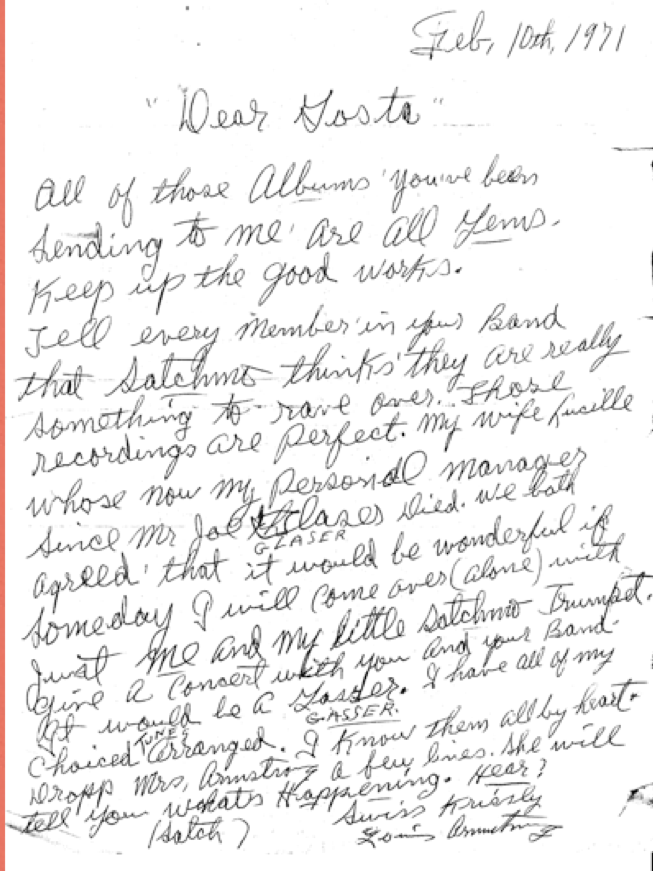 Feb, 10th, 1971
"Dear Gosta"
All of those Albums 'you've been
sending to me' are all Gems.
Keep up the good works.
Tell every member in your Band
that Satchmo thinks' they are really
something to rave over. Those
recordings are perfect. My wife Lucille
whose now my personal manager
since Mr Joe Glaser Died. We both
GLASER
agreed' that it would be wonderful if
someday I will come over (alone) with
Just me and my little Satchmo Trumpet.
Give a Concert with you and your Band.
It would be a Gasser. I have all of my
GASSER.
Choiced TUNES Arranged. I know them all by heart.
Dropp Mrs, Armstrong a few lines. She will
tell you whats Happening. Hear?
Swiss Krissly
(Satch)
Louis Armstrong